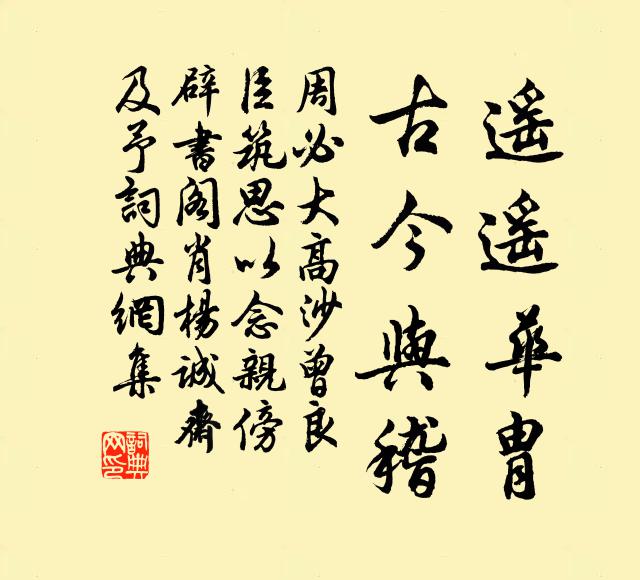 遥遥華胄
古今與稽
周必大高沙曾良
臣筑思以念親傍
辟書閣肖楊誠齋
及予詞典網集
詞典
网印